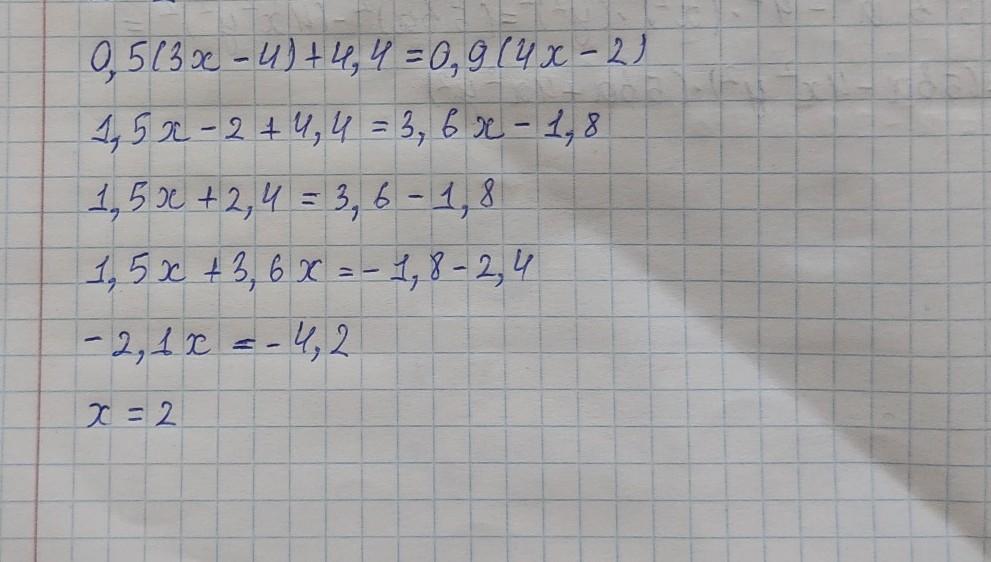 0,5(3x-4)+4,4=0,9(4x-2)
1,5x-2+4,4=3,6x-1,8
1,5x+2,4=3,6-1,8
1,5x+3,6x=-1,8-2,4
-2,1x=-4,2
x=2